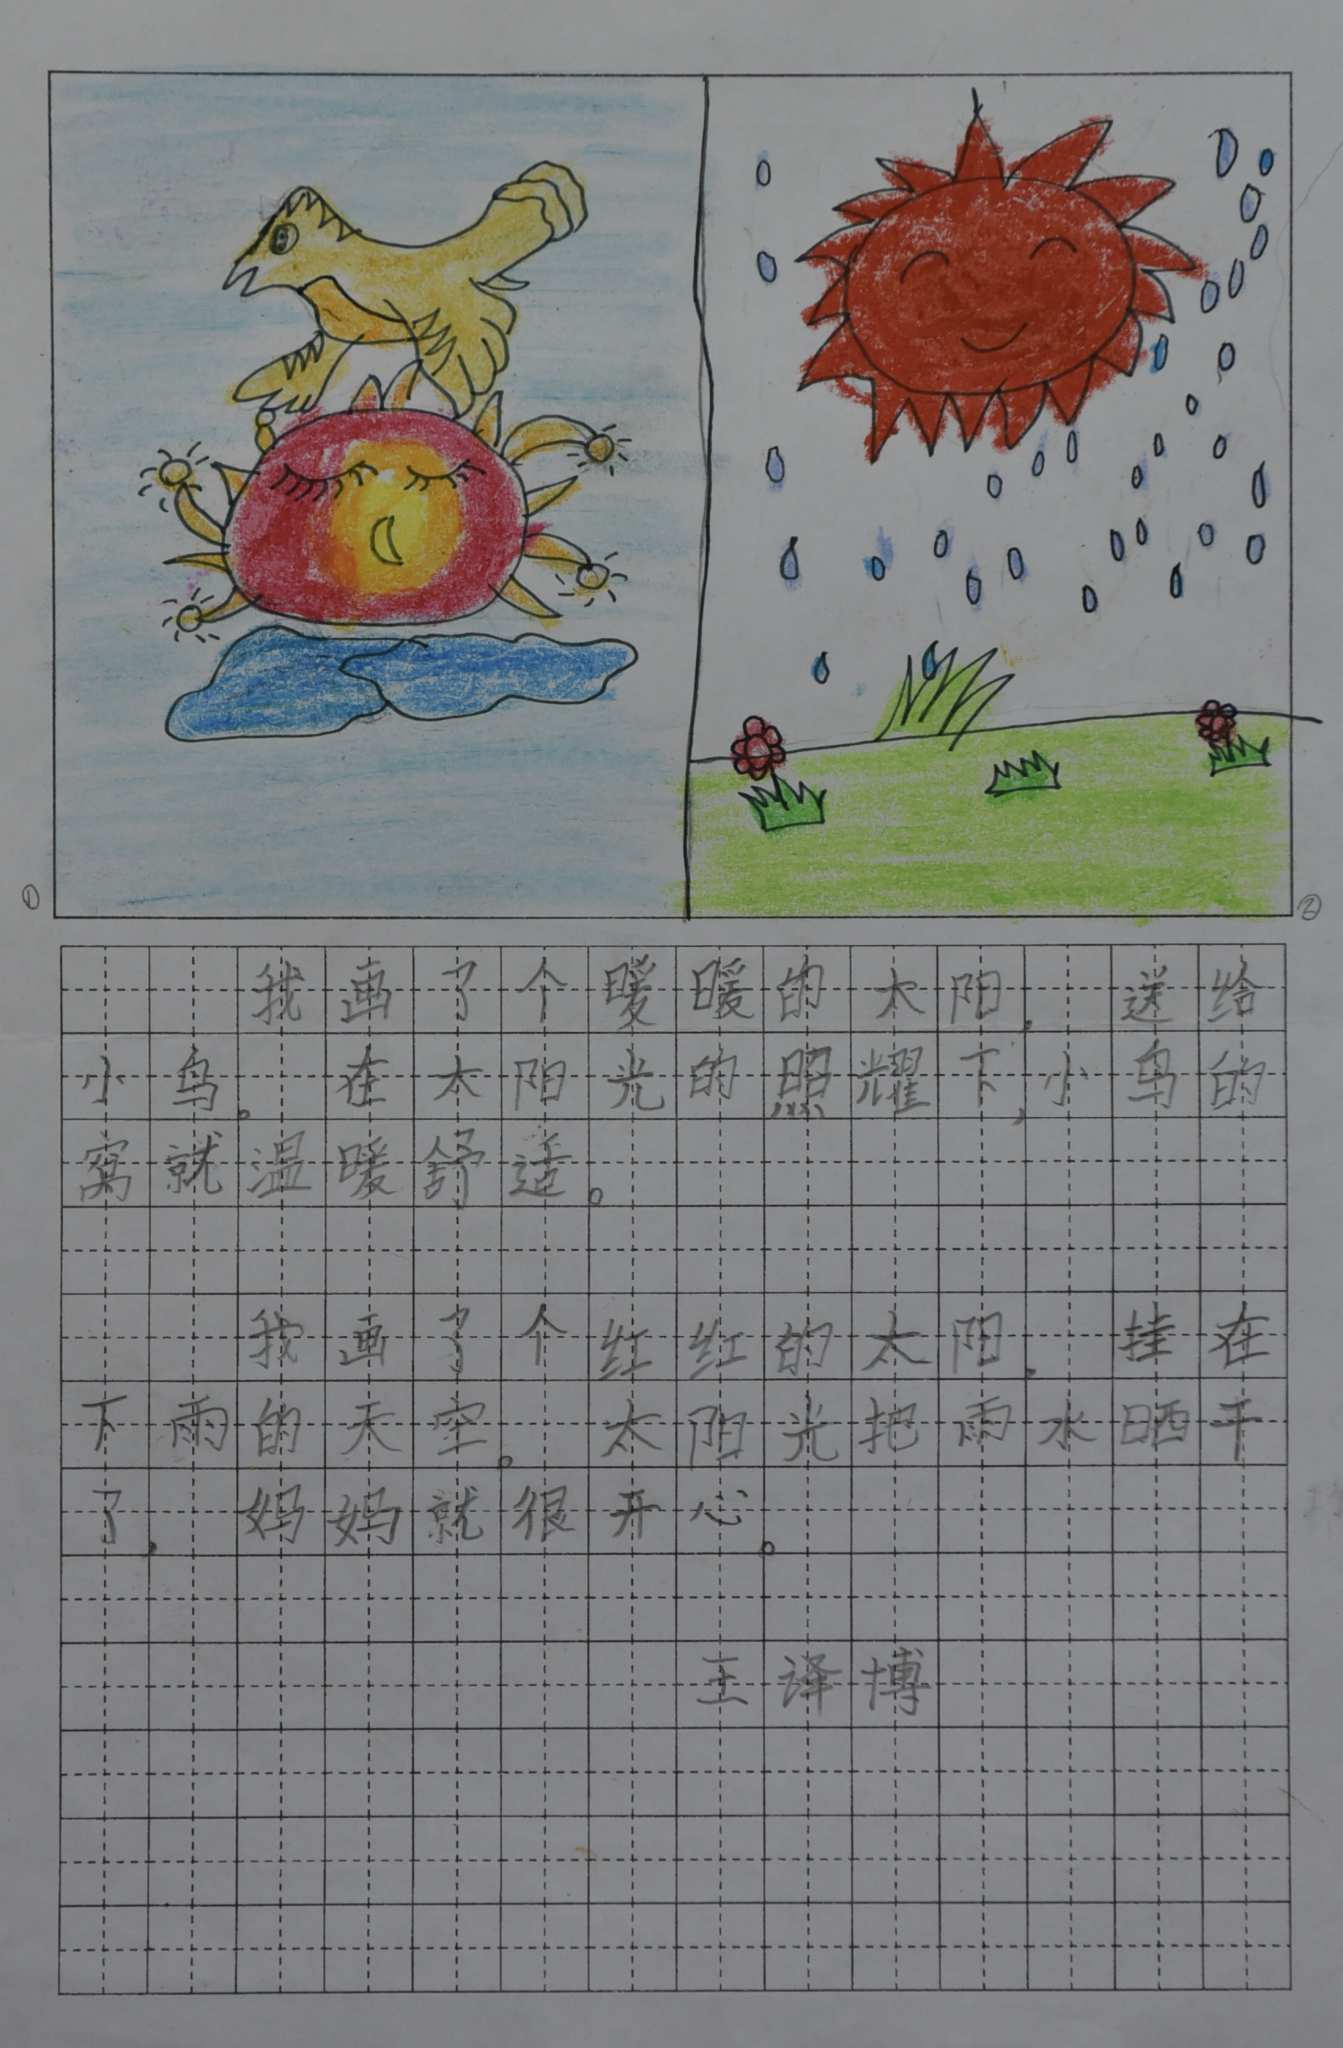 ①
②
我画了个暖暖的太阳，送给
小鸟。在太阳光的照耀下，小鸟的
窝就温暖舒适。
我画了个红红的太阳，挂在
下雨的天空。太阳光把雨水晒干
了，妈妈就很开心。
王译博